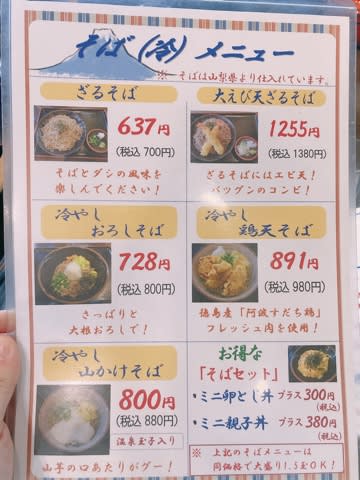 そば(冷)メニュー
※ そばは山梨県より仕入れています。
ざるそば
637円
(税込 700円)
そばとダシの風味を
楽しんでください！
大えび天ざるそば
1255円
(税込 1380円)
ざるそばにはエビ天！
バツグンのコンビ！
冷やし
おろしそば
728円
(税込 800円)
さっぱりと
大根おろしで！
冷やし
鶏天そば
891円
(税込 980円)
徳島産「阿波すだち鶏」
フレッシュ肉を使用！
冷やし
山かけそば
800円
(税込 880円)
温泉玉子入り
山芋の口あたりがグー！
お得な
「そばセット」
・ミニ卵とし丼 プラス300円
(税込)
・ミニ親子丼 プラス380円
(税込)
※ 上記のそばメニューは
同価格で大盛り1.5玉OK！